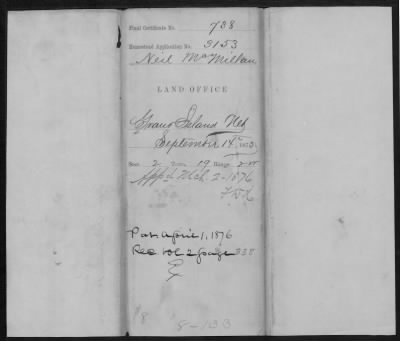 Final Certificate No. 738
Homestead Application No. 3153
Neil McMillan
LAND OFFICE
Grand Island Neb
September 14th 1875
Sect. 2 Town. 19 Range 2
App'd Mch. 2-1876
Pat. April 1, 1876
Rec Vol 2 page 338
8-133